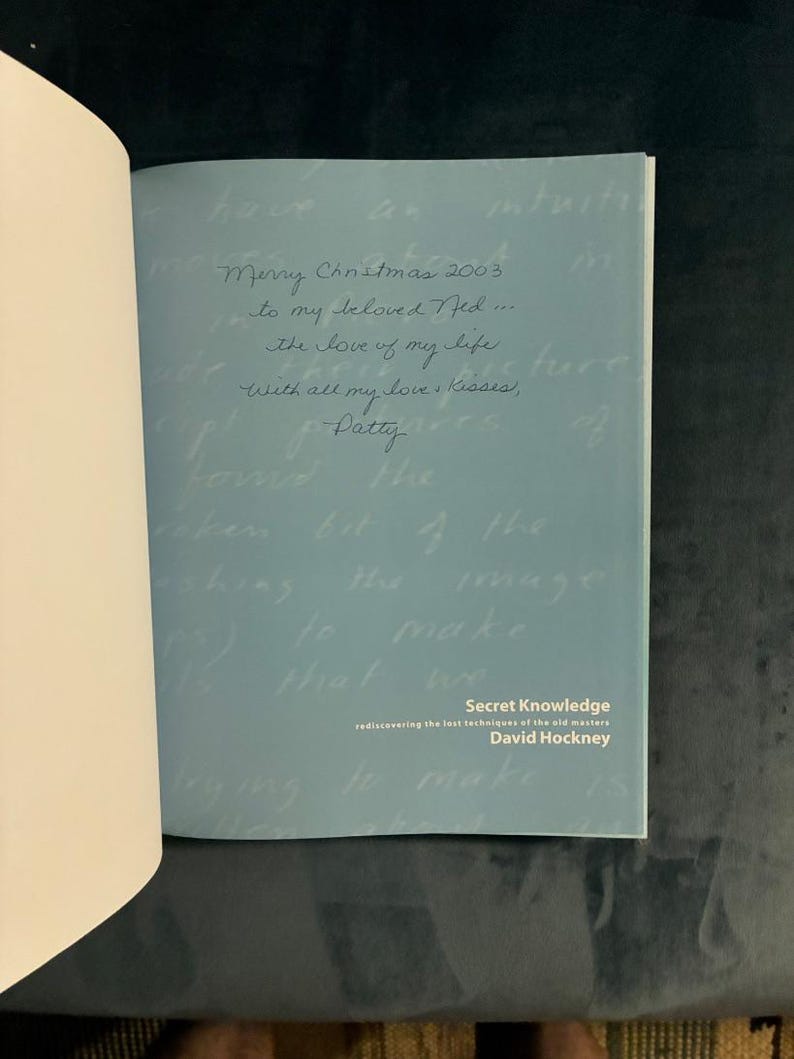 have an intuiti
in
Merry Christmas 2003
to my beloved Ned...
the love of my life
picture
With all my love & Kisses,
pictures of
Patty
found the
bit of the
the image
to make
that we
Secret Knowledge
rediscovering the lost techniques of the old masters
David Hockney
trying to make is
about